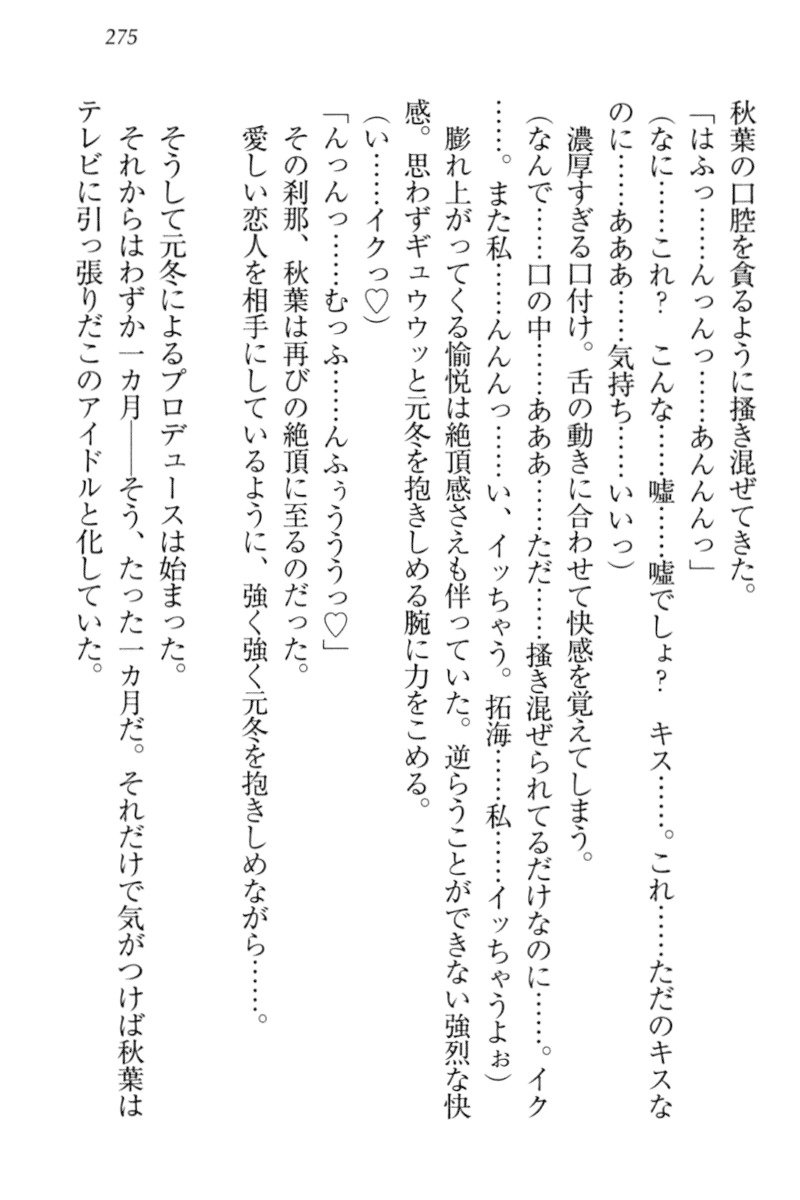 275
秋葉の口腔を貪るように掻き混ぜてきた。
「はふっ……んっんっ……あんんんっ」
(なに……これ？　こんな……嘘……嘘でしょ？　キス……。これ……ただのキスな
のに……あああ……気持ち……いいっ)
濃厚すぎる口付け。舌の動きに合わせて快感を覚えてしまう。
(なんで……口の中……あああ……ただ……掻き混ぜられてるだけなのに……。イク
……。また私……んんんっ……い、イッちゃう。拓海……私……イッちゃうよぉ)
膨れ上がってくる愉悦は絶頂感さえも伴っていた。逆らうことができない強烈な快
感。思わずギュウウッと元冬を抱きしめる腕に力をこめる。
(い……イクっ♡)
「んっんっ……むっふ……んふぅうううっ♡」
その刹那、秋葉は再びの絶頂に至るのだった。
愛しい恋人を相手にしているように、強く強く元冬を抱きしめながら……。
そうして元冬によるプロデュースは始まった。
それからはわずか一カ月――そう、たった一カ月だ。それだけで気がつけば秋葉は
テレビに引っ張りだこのアイドルと化していた。